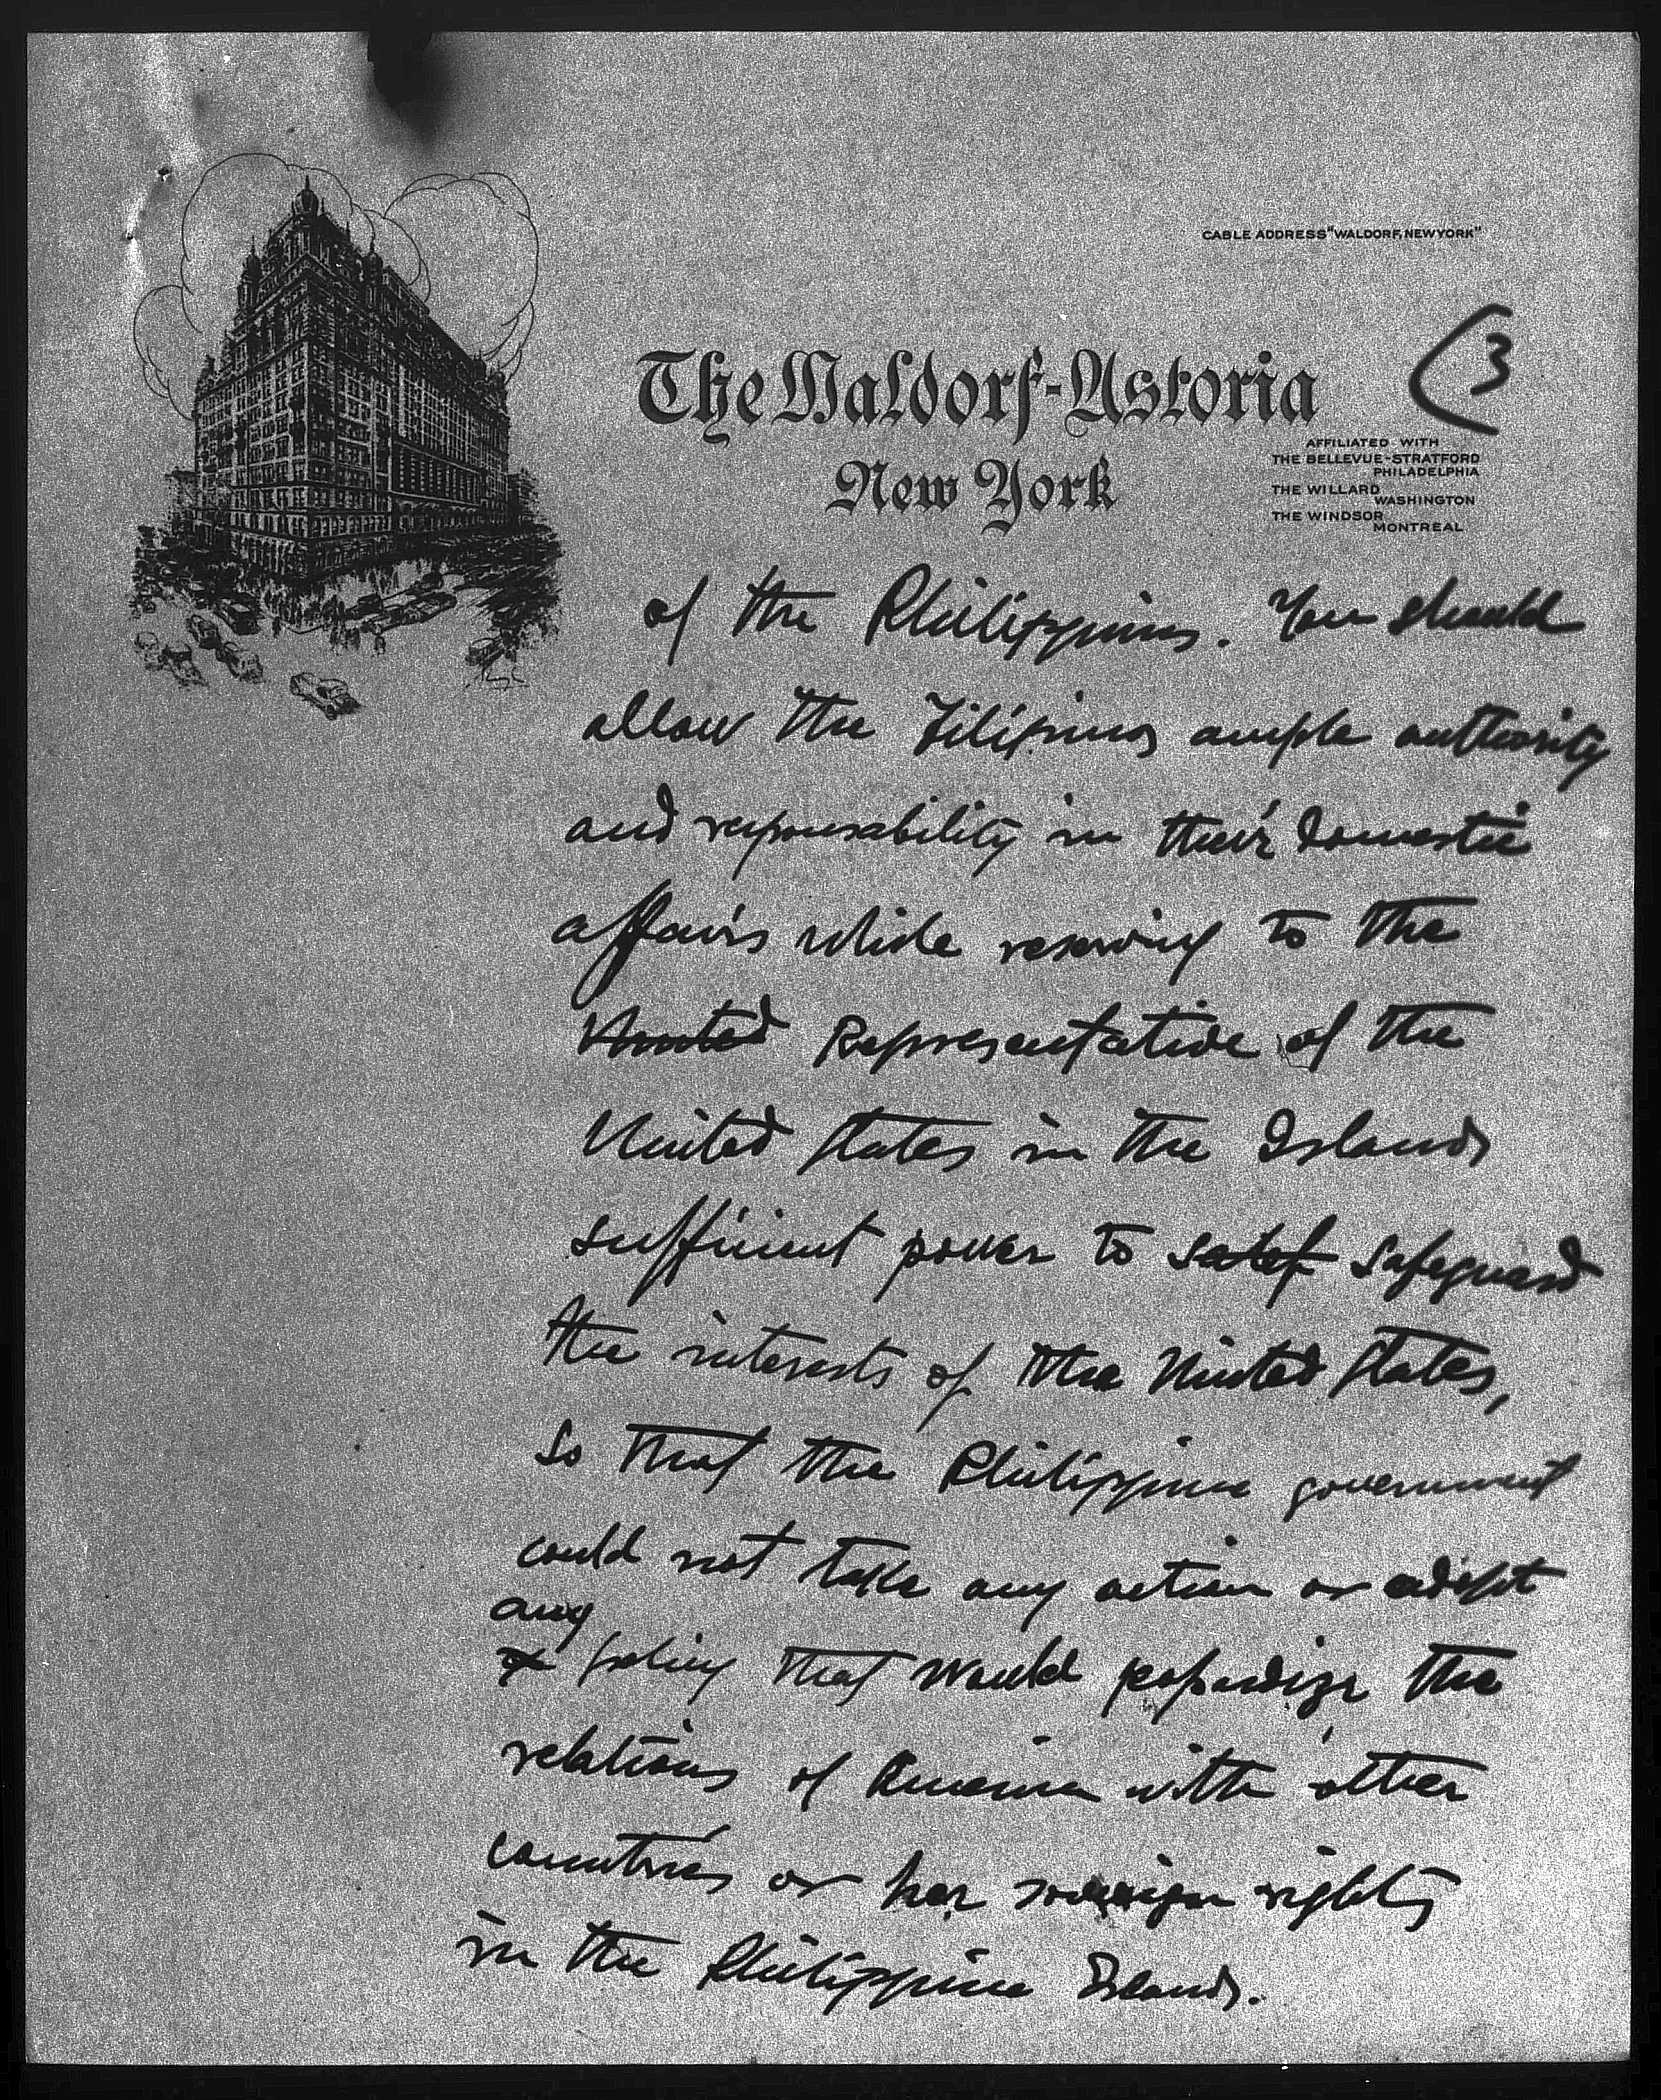 CABLE ADDRESS "WALDORF, NEWYORK"
(3
The Waldorf-Astoria
New York
AFFILIATED WITH
THE BELLEVUE-STRATFORD
PHILADELPHIA
THE WILLARD
WASHINGTON
THE WINDSOR
MONTREAL
of the Philippines. You should
allow the Filipinos ample authority
and responsability in their domestic
affairs while reserving to the
United Representative of the
United States in the Islands
sufficient power to safeguard
the interests of the United States,
so that the Philippine government
could not take any action or adopt
any
policy that would the
relations of America with other
countries or her rights
in the Philippine Islands.